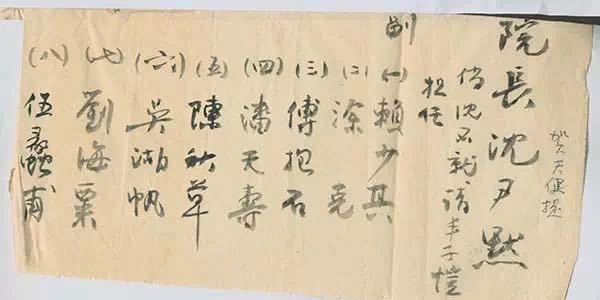 院長沈尹默
倘沈不就請豐子愷
担任
副
(一)賴少其
(二)涂克
(三)傅抱石
(四)潘天壽
(五)陳秋草
(六)吳湖帆
(七)劉海粟
(八)伍蠡甫
賀天健提